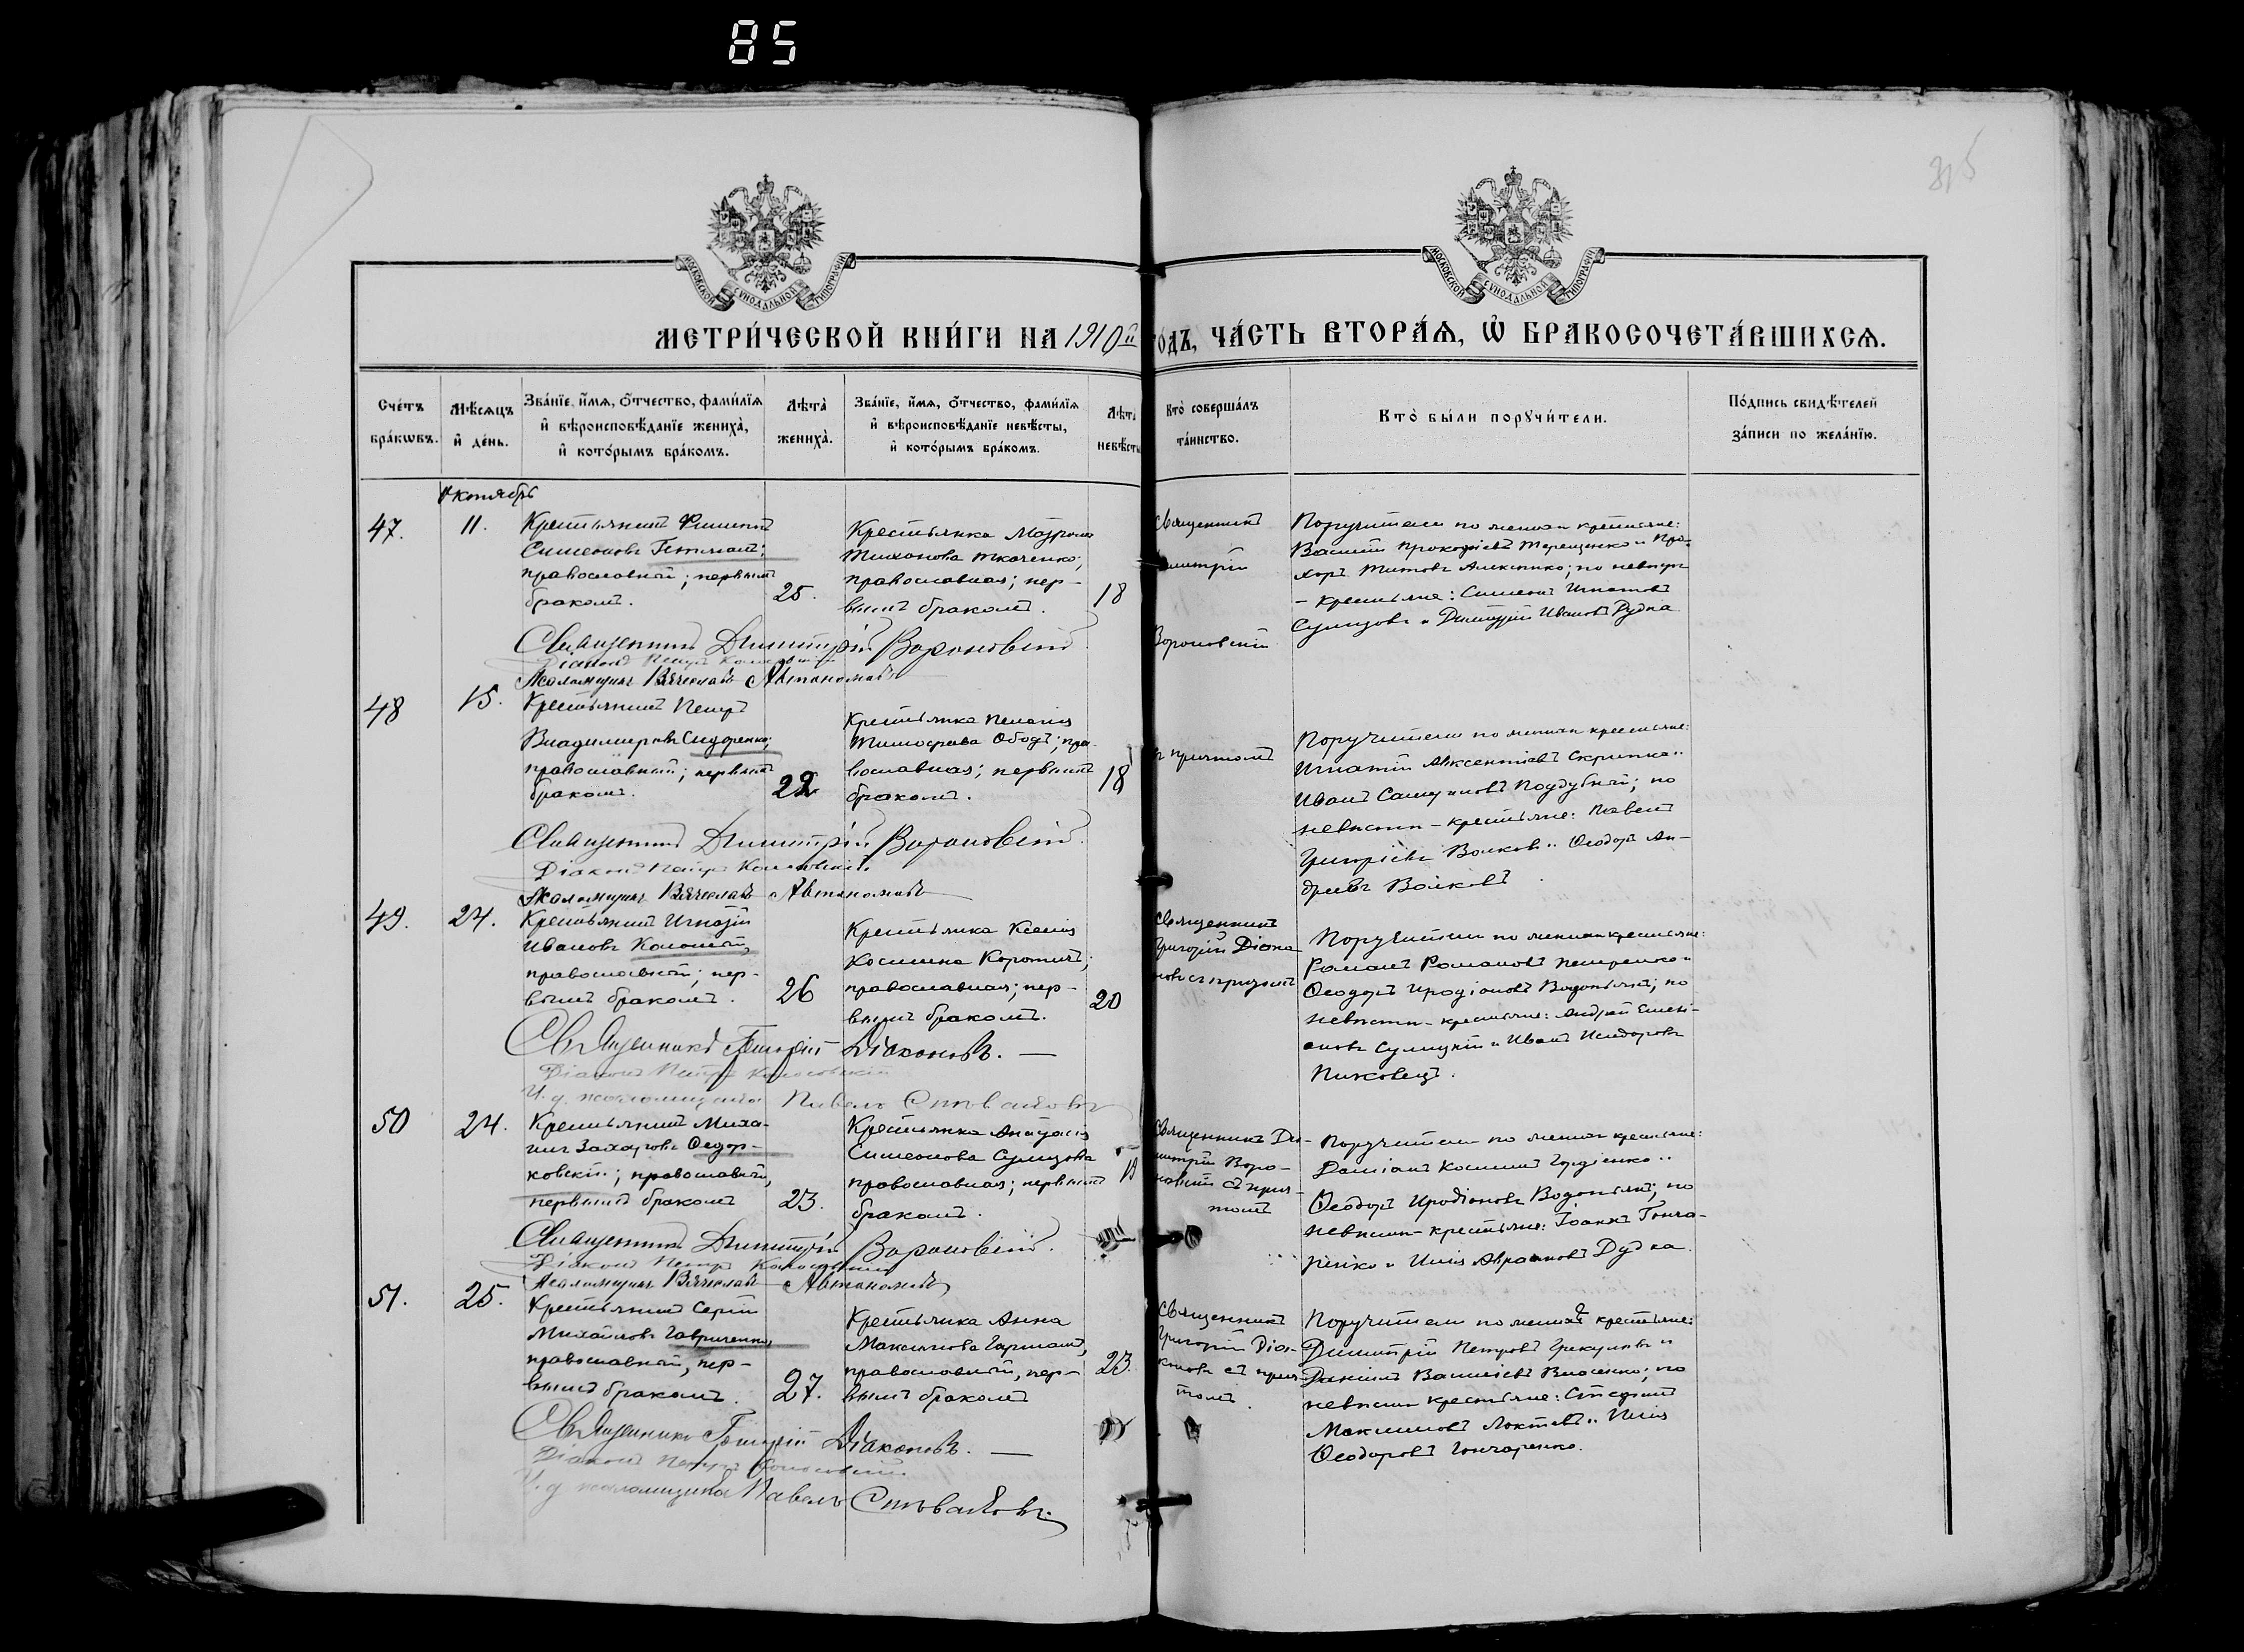 85
315
МОСКОВСКОЙ СѴНОДАЛЬНОЙ ТИПОГРАФІИ
МОСКОВСКОЙ СѴНОДАЛЬНОЙ ТИПОГРАФІИ
МЕТРИ́ЧЕСКОЙ КНИ́ГИ НА 1910й
ГО́ДЪ, ЧА́СТЬ ВТОРА́Ѧ, Ѡ҆ БРАКОСОЧЕТА́ВШИХСѦ.
Сче́тъ бра́кѡвъ.
Мѣ́сѧцъ и҆ де́нь.
Зва́нїе, и҆́мѧ, ѻ҆́тчество, фами́лїѧ
и҆ вѣроисповѣ́данїе жениха̀,
и҆ кото́рымъ бра́комъ.
Лѣта̀ жениха̀.
Зва́нїе, и҆́мѧ, ѻ҆́тчество, фами́лїѧ
и҆ вѣроисповѣ́данїе невѣ́сты,
и҆ кото́рымъ бра́комъ.
Лѣта̀ невѣ́сты
Кто̀ соверша́лъ та́инство.
Кто̀ бы́ли порꙋчи́тели.
По́дпись свидѣ́телей за́писи по жела́нїю.
Октябрь
47.
11.
Крестьянинъ Филиппъ
Симеоновъ Гетманъ;
православный; первымъ
бракомъ.
25.
Крестьянка
Тихонова Ткаченко;
православная; пер-
вымъ бракомъ.
18
Священникъ
Димитрій
Вороновскій
Поручители по женихѣ крестьяне:
Василій Прокофіевъ Терещенко и Про-
хоръ Титовъ Алексенко; по невѣстѣ
- крестьяне: Симеонъ Игнатовъ
и Димитрій Ивановъ Дудка
Священникъ Димитрій Вороновскій
Діаконъ Петръ
Псаломщикъ Вячеславъ Автономовъ
48
15.
Крестьянинъ Петръ
Владимировъ Сидоренко;
православный; первымъ
бракомъ.
22
Крестьянка Пелагія
Тимофеева Ободъ; пра-
вославная; первымъ
бракомъ.
18
съ причтомъ
Поручители по женихѣ крестьяне:
Игнатій Авксентіевъ Скрипка и
Иванъ Поддубный; по
невѣстѣ - крестьяне: Павелъ
Григоріевъ Волковъ и Ѳеодоръ Ан-
дреевъ Волковъ
Священникъ Димитрій Вороновскій
Діаконъ Петръ
Псаломщикъ Вячеславъ Автономовъ
49.
24.
Крестьянинъ Игнатій
Ивановъ
православный; пер-
вымъ бракомъ.
26
Крестьянка Ксенія
Косьмина Коротичъ;
православная; пер-
вымъ бракомъ.
20
Священникъ
Григорій Діако-
новъ съ причтомъ
Поручители по женихѣ крестьяне:
Романъ Романовъ Петренко и
Ѳеодоръ Иродіоновъ Водопьянъ; по
невѣстѣ - крестьяне: Андрей
и Иванъ Исидоровъ
Пиковецъ.
Священникъ Григорій Діаконовъ. —
Діаконъ Петръ
И. д. псаломщика Павелъ Стовайловъ
50
24.
Крестьянинъ Миха-
илъ Захаровъ Ѳедор-
ковскій; православный,
первымъ бракомъ
23.
Крестьянка Анастасія
Симеонова
православная; первымъ
бракомъ.
Священникъ Ди-
митрій Воро-
новскій съ прич-
томъ
Поручители по женихѣ крестьяне:
Даміанъ Косьминъ Гордіенко и
Ѳеодоръ Иродіоновъ Водопьянъ; по
невѣстѣ - крестьяне: Іоаннъ Гонча-
ренко и Илія Дудка.
Священникъ Димитрій Вороновскій.
Діаконъ Петръ
Псаломщикъ Вячеславъ Автономовъ
51.
25.
Крестьянинъ Сергій
Михайловъ Гавриченко,
православный, пер-
вымъ бракомъ.
27.
Крестьянка Анна
Максимова Гарманъ,
православный, пер-
вымъ бракомъ
23.
Священникъ
Григорій Діа-
коновъ съ прич-
томъ.
Поручители по женихѣ крестьяне:
Димитрій Петровъ и
Даніилъ Василіевъ Власенко; по
невѣстѣ крестьяне: Стефанъ
Максимовъ Локтевъ и Илія
Ѳеодоровъ Гончаренко.
Священникъ Григорій Діаконовъ. —
Діаконъ Петръ
И. д. псаломщика Павелъ Стовайловъ.